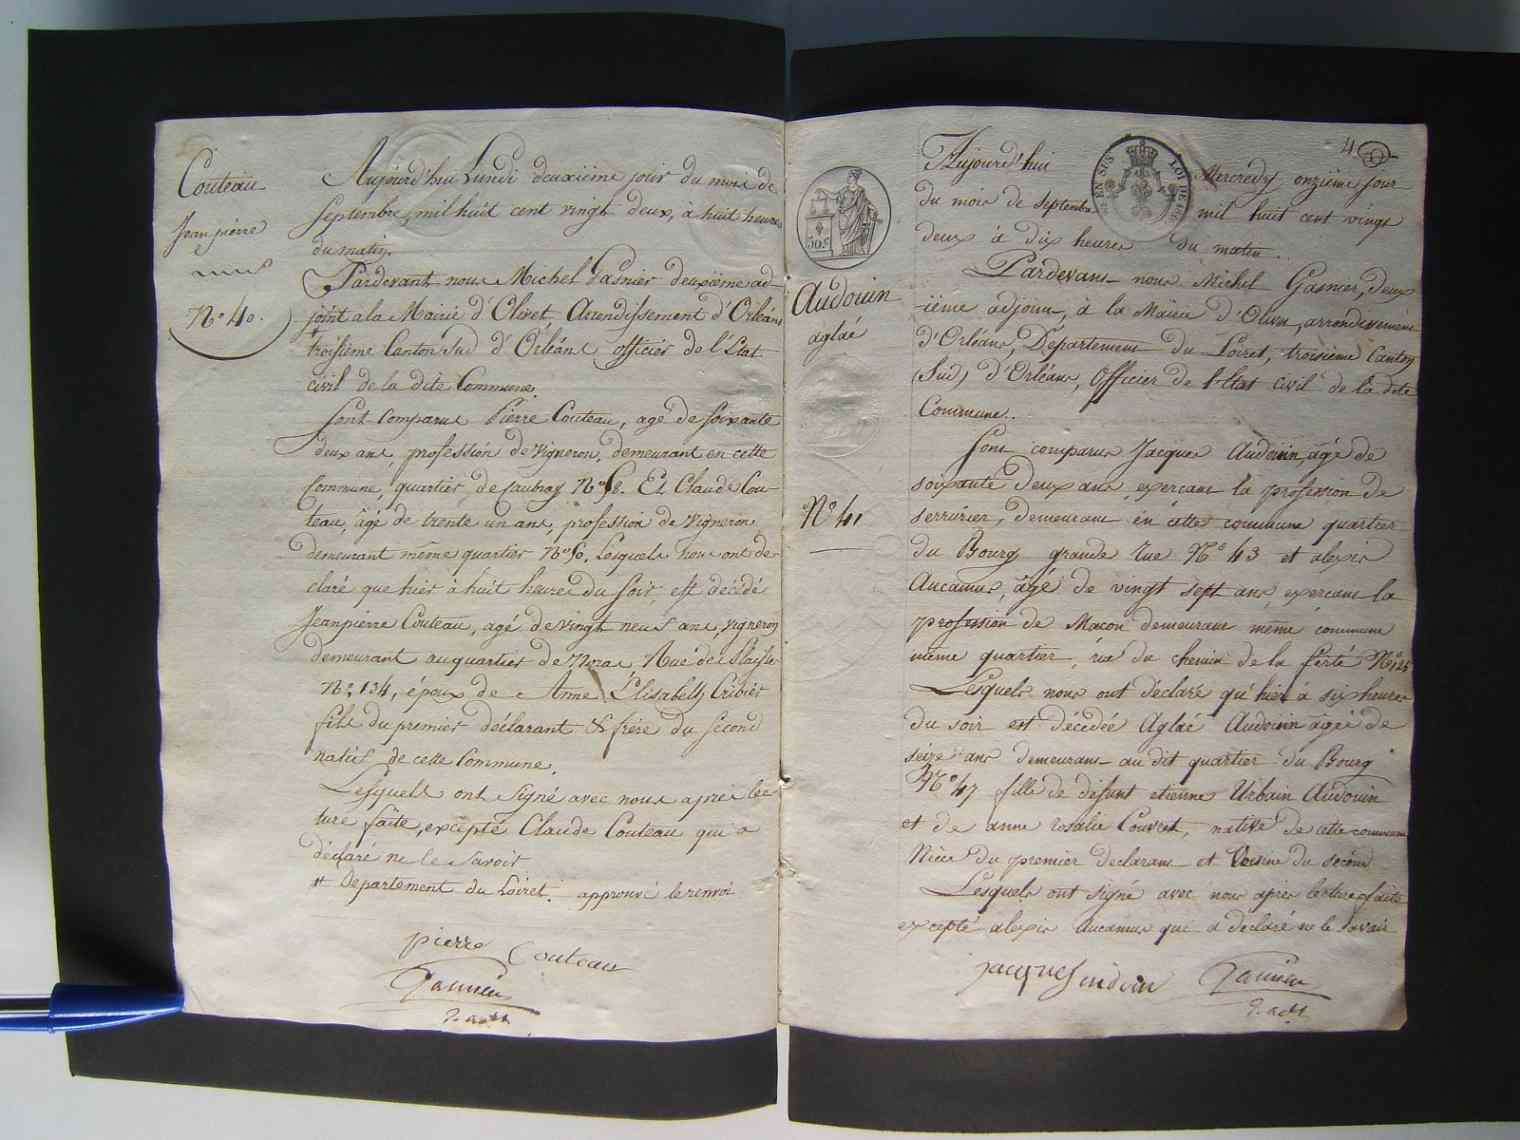 Couteau
Jean pierre
N° 40.
Aujourd'hui Lundi deuxième jour du mois de
Septembre, mil huit cent vingt deux, à huit heures
du matin.
Pardevant nous Michel Gasnier deuxième ad-
joint a la Mairie d'Olivet Arrondissement d'Orléans
troisieme Canton Sud d'Orléans officier de l'Etat
civil de la dite Commune.
Sont comparus Pierre Couteau, agé de soixante
deux ans, profession de Vigneron, demeurant en cette
Commune, quartier de Et Claude Cou-
teau, âgé de trente un ans, profession de Vigneron
demeurant même quartier Lesquels nous ont dé-
claré que hier à huit heures du soir, est décédé
Jean pierre Couteau, agé de vingt neuf ans, vigneron
demeurant au quartier de Rue de
N° 134, époux de Anne Elisabeth Cribier
fils du premier déclarant & frère du second
natif de cette Commune.
Lesquels ont signé avec nous après lec-
ture faite, excepté Claude Couteau qui a
déclaré ne le savoir
# Departement du Loiret. approuvé le renvoi
pierre Couteau
Gasnier
4
EN SUS
LOI DE 1816
50c
Audouin
aglaé
N° 41
Aujourd'hui Mercredy onzième jour
du mois de septembre mil huit cent vingt
deux à dix heures du matin.
Pardevant nous Michel Gasnier, deux
ième adjoint, à la Mairie d'Olivet, arrondissement
d'Orléans, Département du Loiret, troisième Canton
(Sud) d'Orléans, Officier de l'Etat civil de la dite
Commune.
Sont comparus Jacques Audouin, âgé de
soixante deux ans, exerçant la profession de
serrurier, demeurant en cette commune quartier
du Bourg grande rue N° 43 et alexis
Aucamus, âgé de vingt sept ans, exerçant la
profession de Macon demeurant même commune
même quartier, rue du chemin de la ferté N° 125
Lesquels nous ont déclaré qu'hier à six heures
du soir est décédée Aglaé Audouin agée de
seize ans demeurant au dit quartier du Bourg
N° 47 fille de défunt etienne Urbain Audouin
et de anne rosalie Couvret, native de cette commune
Nièce du premier declarant et Voisine du second
Lesquels ont signé avec nous après lecture faite
excepté alexis Aucamus qui a déclaré ne le savoir
jacques Audouin
Gasnier